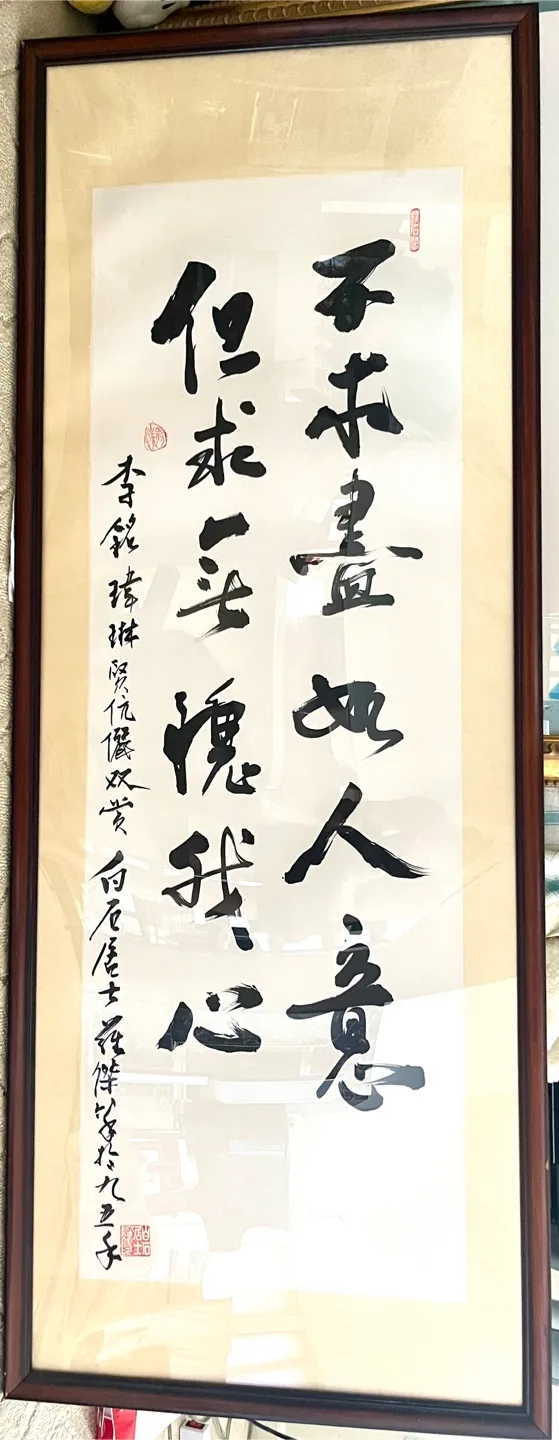 不求盡如人意
但求無愧我心
李銘瑋琳賢伉儷双赏
白石居士羅傑筆於九五年